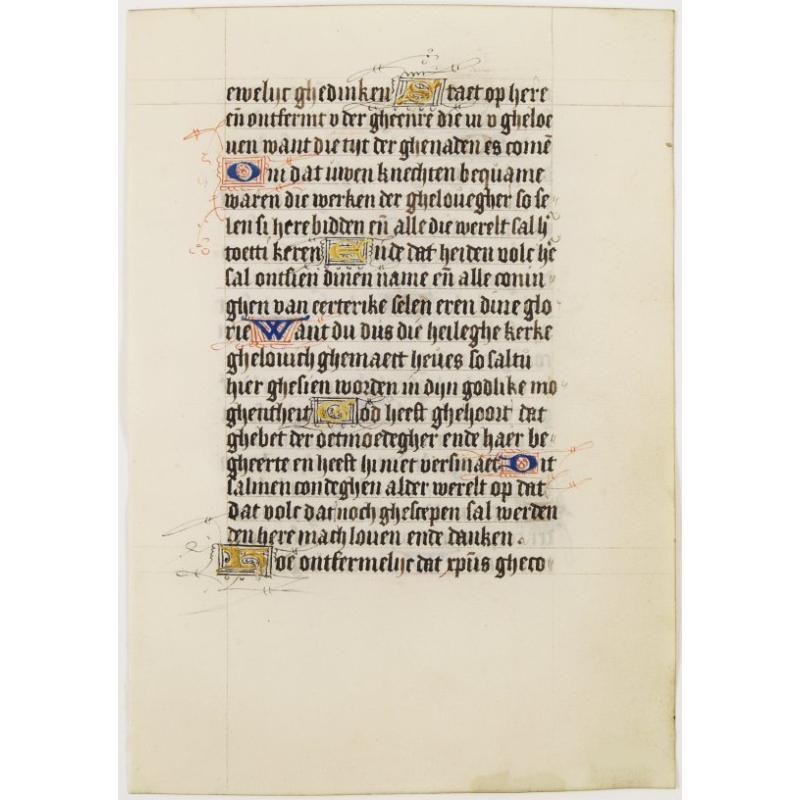 ewelijc ghedinken Staet op here
eñ ontfermt v der gheenre die in v gheloe
uen want die tijt der ghenaden es comē
Om dat uwen knechten bequame
waren die werken der ghelouegher so se
len si here bidden eñ alle die werelt sal hi
toetti keren Ende dat heiden volc he
sal ontsien dinen name eñ alle conin
ghen van eerterike selen eren dine glo
rie Want du dus die heileghe kerke
ghelouich ghemaect heues so saltu
hier ghesien worden in dijn godlike mo
ghentheit God heeft ghehoort dat
ghebet der oetmoedegher ende haer be
gheerte en heeft hi niet versmaet Dit
salmen condeghen alder werelt op dat
dat volc dat noch ghescepen sal werden
den here mach louen ende danken .
Hoe ontfermelijc dat xpūs gheco